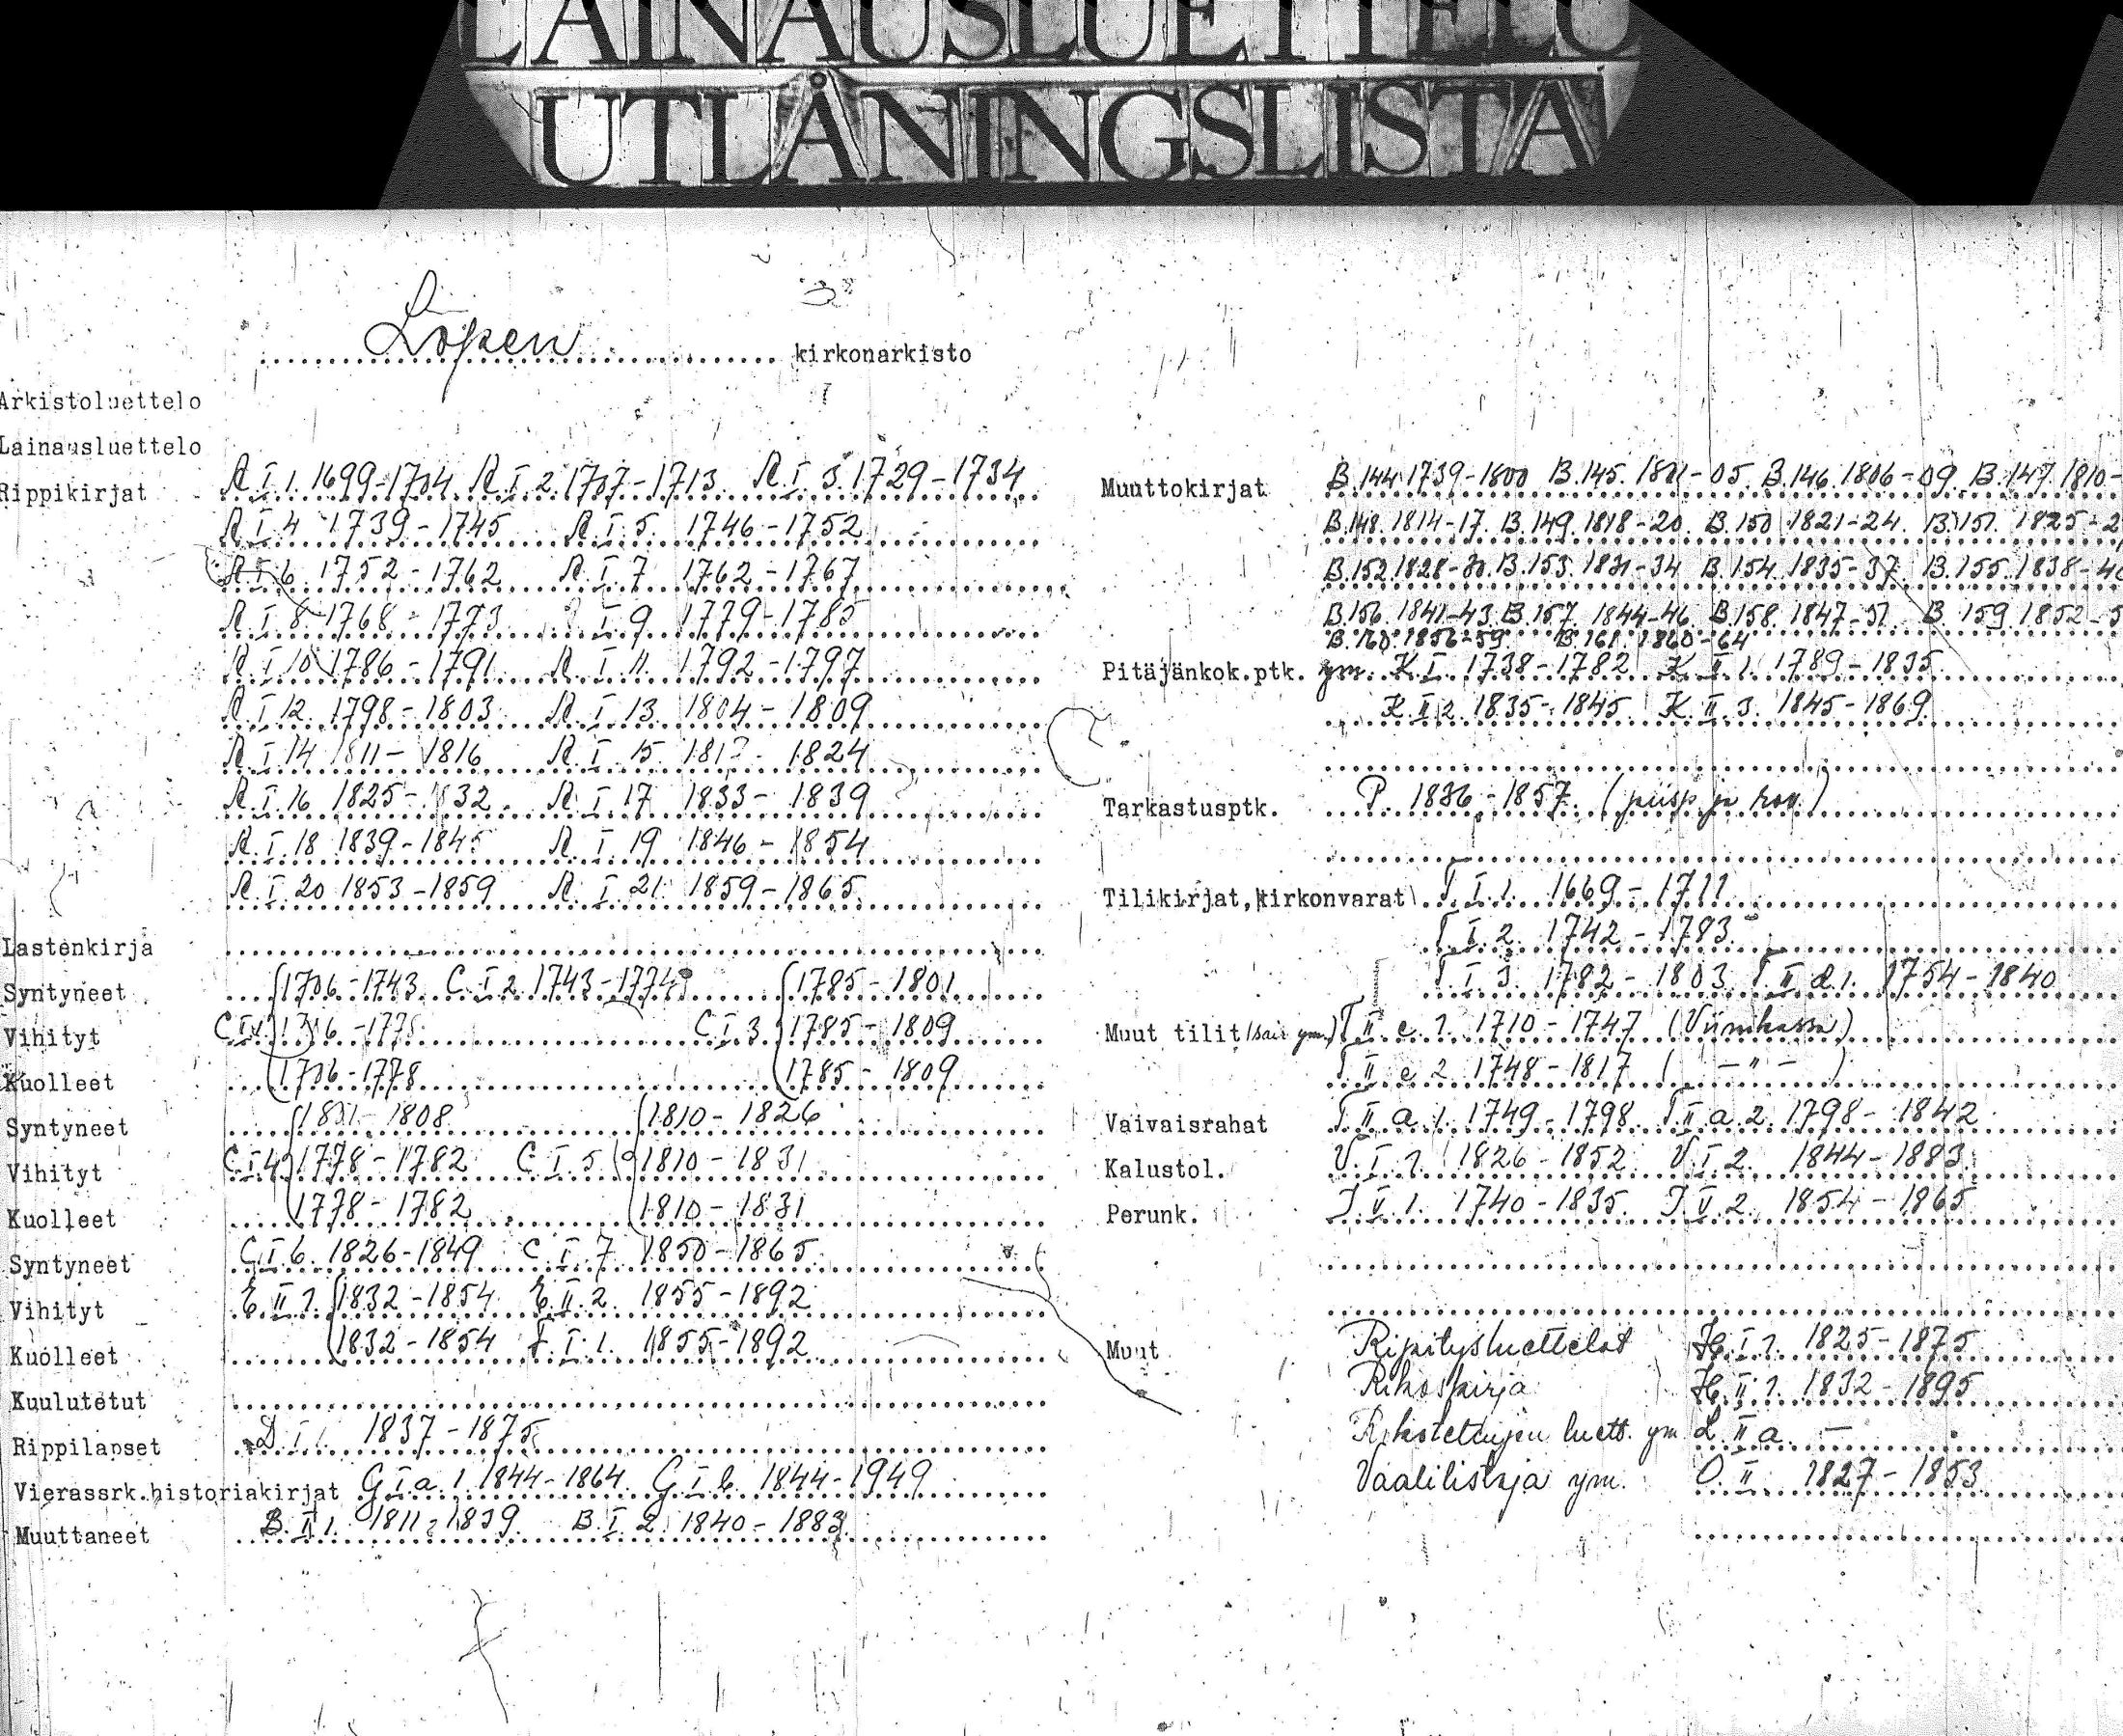 LAINAUSLUETTELO
UTLÅNINGSLISTA
Lopen kirkonarkisto
Arkistoluettelo
Lainausluettelo
Rippikirjat R.I.1. 1699-1704 R.I.2. 1707-1713 R.I.3. 1729-1734
R.I.4 1739-1745 R.I.5. 1746-1752
R.I.6. 1752-1762 R.I.7 1762-1767
R.I.8 1768-1773 I.9 1779-1785
R.I.10 1786-1791 R.I.11. 1792-1797
R.I.12. 1798-1803 R.I.13. 1804-1809
R.I.14 1811-1816 R.I.15. 1824
R.I.16 1825-1832 R.I.17 1833-1839
R.I.18 1839-1845 R.I.19 1846-1854
R.I.20 1853-1859 R.I.21. 1859-1865
Lastenkirja
Syntyneet 1706-1743 C.I.2 1743-1774 1785-1801
Vihityt C.I.1. C.I.3 1785-1809
Kuolleet 1706-1778 1785-1809
Syntyneet 1801-1808 1810-1826
Vihityt C.I.4 1778-1782 C.I.5 1810-1831
Kuolleet 1778-1782 1810-1831
Syntyneet C.I.6. 1826-1849 C.I.7 1850-1865
Vihityt E.II.1. 1832-1854 E.II.2. 1855-1892
Kuolleet 1832-1854 F.I.1. 1855-1892
Kuulutetut
Rippilapset D.I.1. 1837-1875
Vierassrk.historiakirjat G.I.a.1. 1844-1864 G.I.b. 1844-1949
Muuttaneet 1811-1839 B.I.2. 1840-1883
Muuttokirjat B.144 1739-1800 B.145. 1801-05 B.146. 1806-09 B.147. 1810-
B.148. 1814-17. B.149. 1818-20. B.150 1821-24. B.151. 1825-2
B.152 1828-30. B.153. 1831-34 B.154 1835-37. B.155. 1838-40
B.156. 1841-43. B.157. 1844-46. B.158. 1847-51. B.159. 1852-5
B.160. 1856-59. B.161. 1860-64
Pitäjänkok.ptk. ym. K.I. 1738-1782 K.II.1. 1789-1835
K.II.2. 1835-1845 K.II.3. 1845-1869
Tarkastusptk. P. 1836-1857. (piisp. ja rov.)
Tilikirjat, kirkonvarat T.I.1. 1669-1711
T.I.2. 1742-1783
T.I.3. 1782-1803 T.II.d.1. 1754-1840
Muut tilit T.II.e.1. 1710-1747 (Viinikassa)
T.II.e.2. 1748-1817 ( -"- )
Vaivaisrahat T.II.a.1. 1749-1798 T.II.a.2. 1798-1842
Kalustol. U.I.1. 1826-1852 U.I.2. 1844-1883
Perunk. J.V.1. 1740-1835. J.V.2. 1854-1865
Muut Ripitysluettelot H.I.1. 1825-1875
Rikoskirja H.II.1. 1832-1895
Rokotettujen luett. ym L.II.a. —
Vaalilistoja ym. O.II. 1827-1853